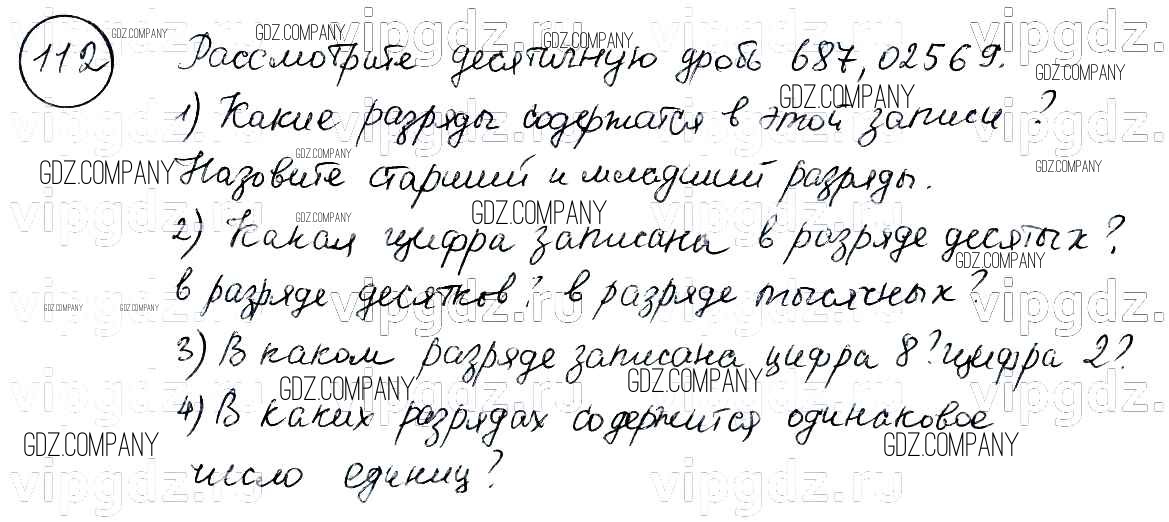 112 Рассмотрите десятичную дробь 687,02569.
1) Какие разряды содержатся в этой записи?
Назовите старший и младший разряды.
2) Какая цифра записана в разряде десятых?
в разряде десятков? в разряде тысячных?
3) В каком разряде записана цифра 8? цифра 2?
4) В каких разрядах содержится одинаковое
число единиц?